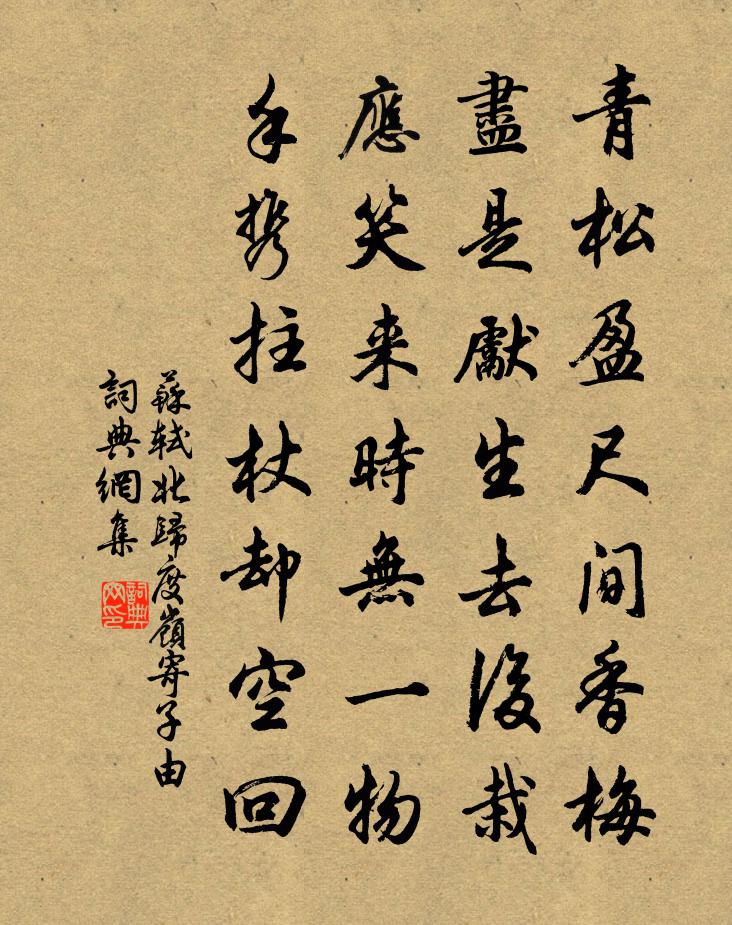 青松盈尺間香梅
盡是獻生去後栽
應笑来時無一物
手携拄杖却空回
蘇軾北歸度嶺寄子由
詞典網集
詞典网印